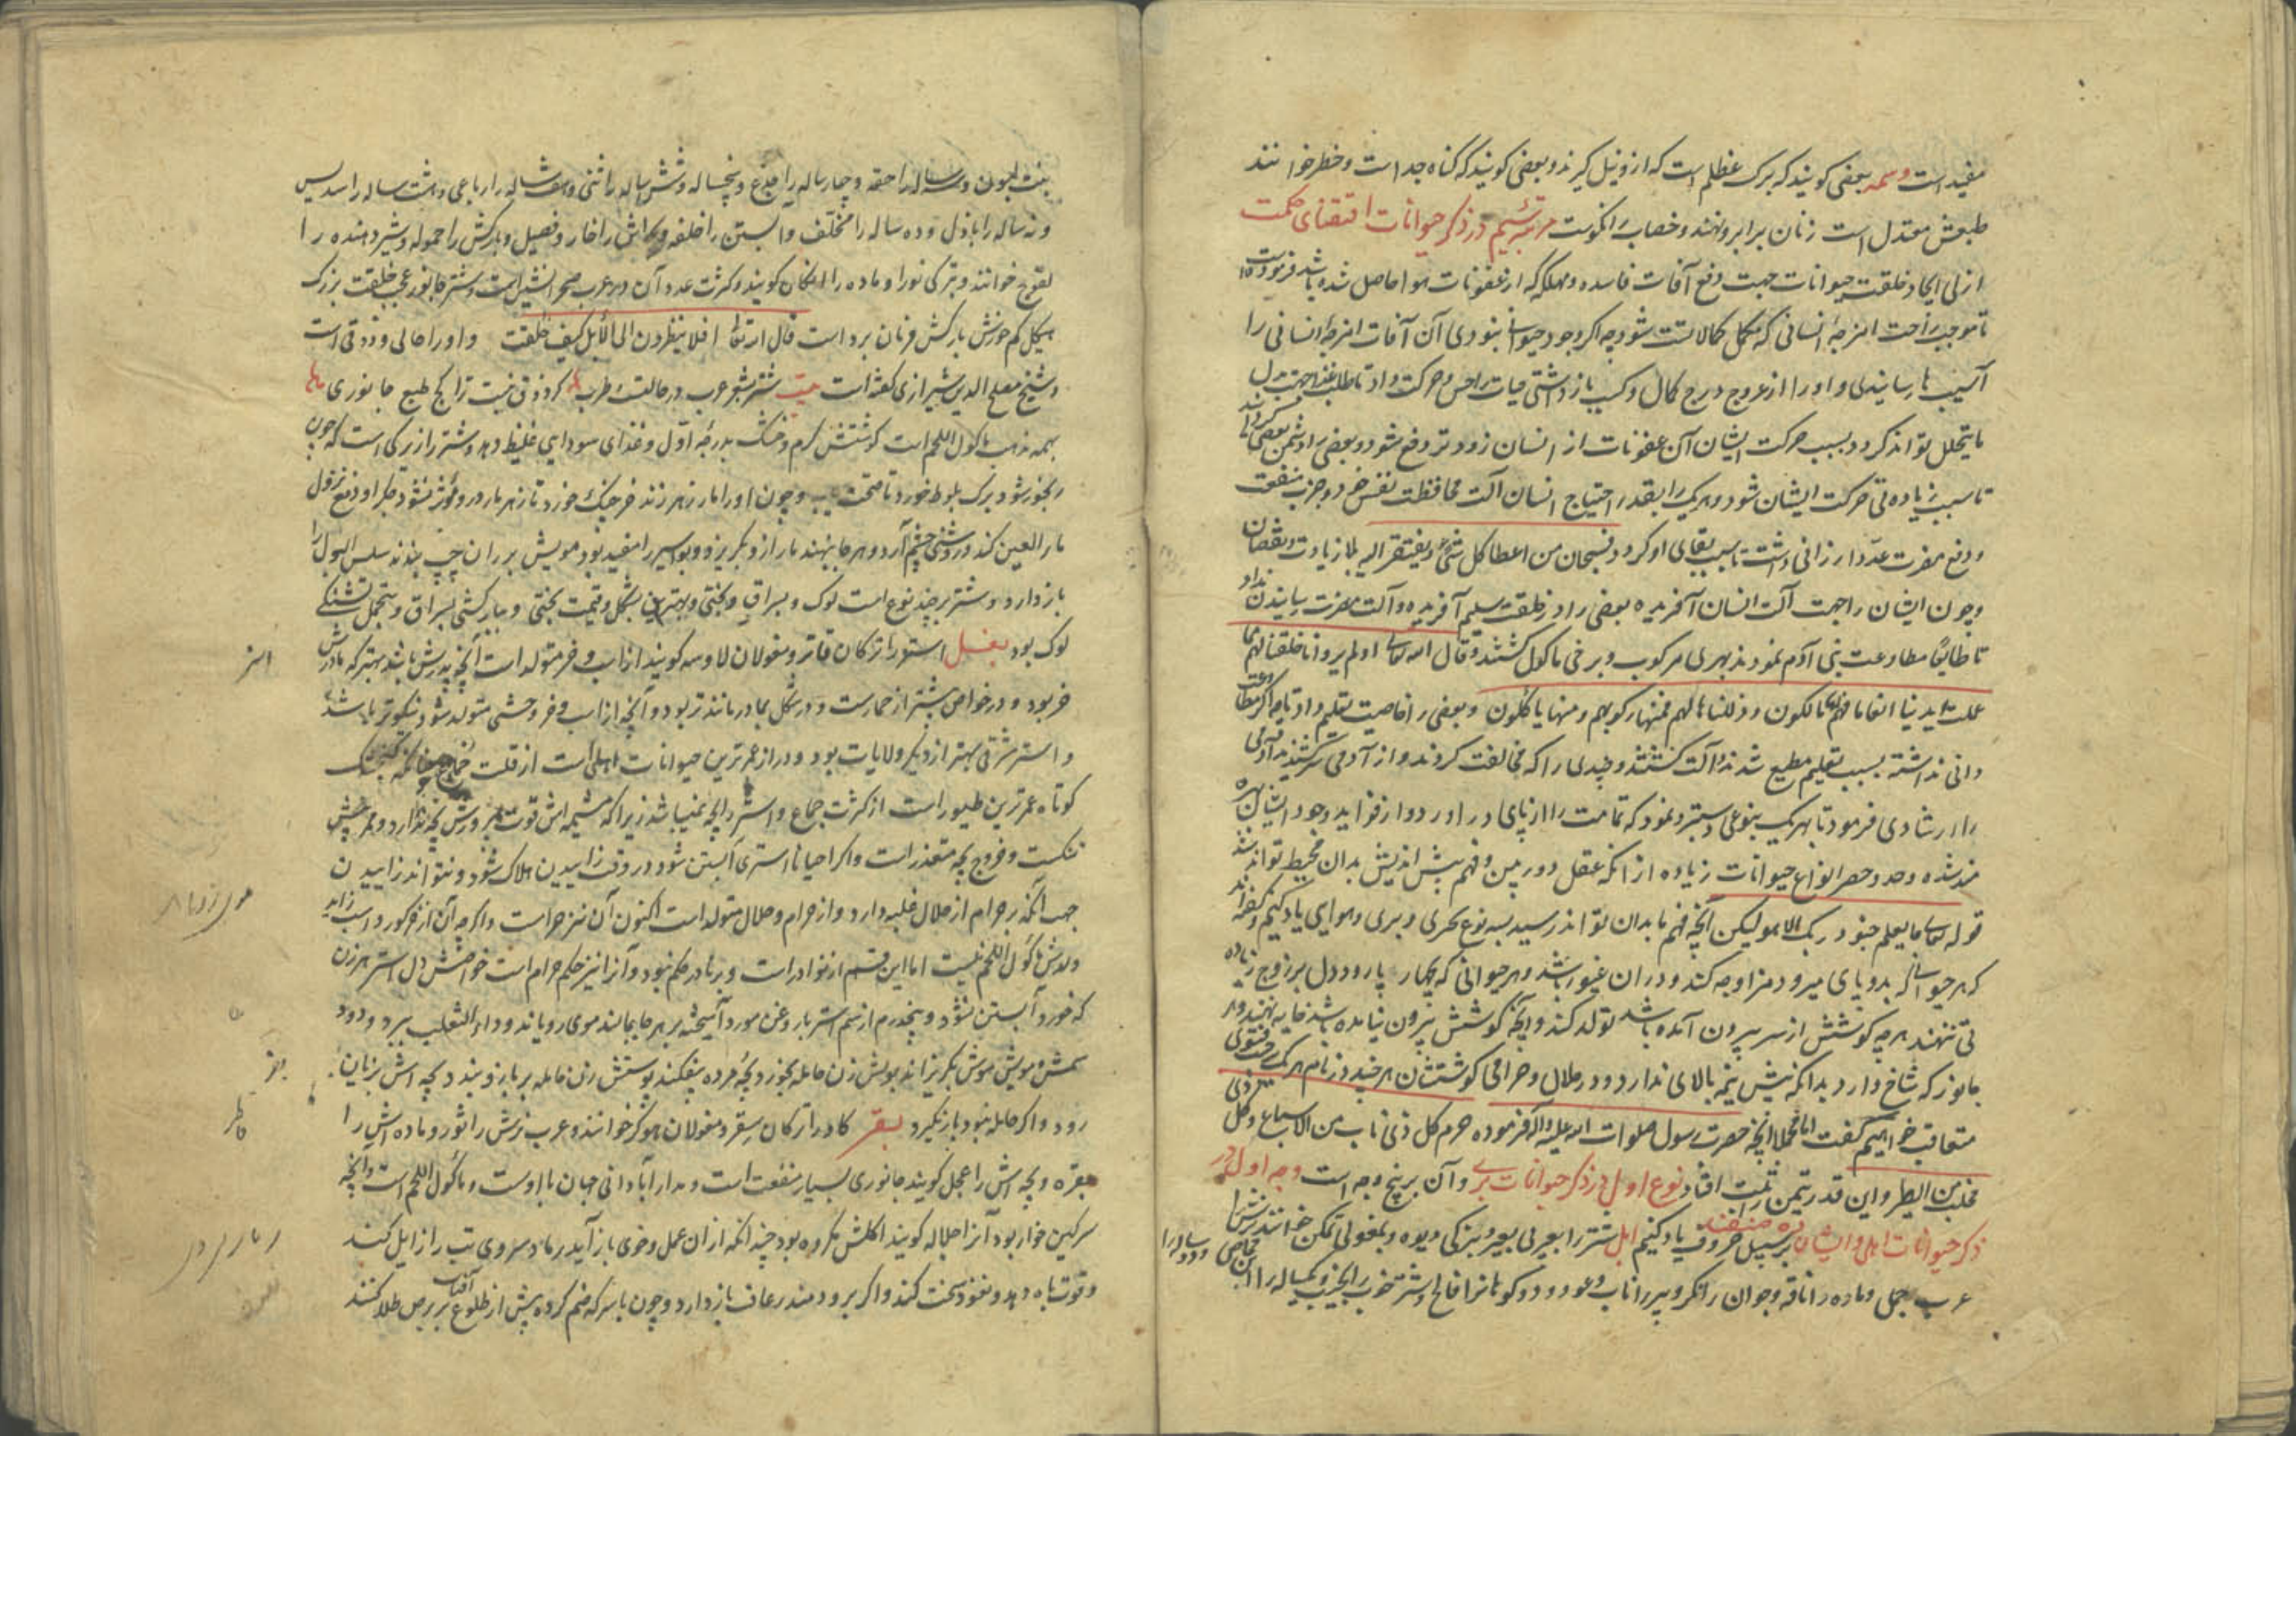 مفید است وسمه بعضی کویند که برک عظلم است که ازو نیل کیرند و بعضی کویند که کیاه جداست و خطر خوانند
طبعش معتدل است زنان بر ابرو نهند و خضاب را نکوست مرتبه سیم در ذکر حیوانات اقتضای حکمت
ازلی ایجاد خلقت حیوانات جهت دفع آفات فاسده و مهلکه که از عفونات هوا حاصل شده باشد فرموده است
تا موجب راحت امزجۀ انسانی که مکمل کمالاتست شود چه اکر وجود حیوان نبودی آن آفات امزجۀ انسانی را
آسیب ها رسانیدی و او را از عروج درج کمال و کسب بازداشتی حیات را حس و حرکت داد تا طلب غذا جهت بدل
مایتحلل تواند کرد و بسبب حرکت ایشان آن عفونات از انسان زودتر دفع شود و بعضی را دشمن بعضی کردانید
تا سبب زیاده تی حرکت ایشان شود و هریک را بقدر احتیاج انسان آلت محافظت نفس خود و جذب منفعت
و دفع مضرت عدو ارزانی داشت تا سبب بقای او کردد فسبحان من اعطا کل شئ ویفتقر الیه بلا زیادت و نقصان
و چون ایشان را جهت آلت انسان آفریده بعضی را در خلقت سلیم آفریده و آلت مضرت رسانیدن نداد
تا طایعا مطاوعت بنی آدم نمودند بهری مرکوب و برخی ماکول کشتند و قال الله تعالی اولم یروا انا خلقنا لهم مما
عملت ایدینا انعاما فهم لها مالکون و ذللناها لهم فمنها رکوبهم و منها یاکلون و بعضی را خاصیت تعلیم داد تا چه اکر مطاوعت
ذاتی نداشته بسبب تعلیم مطیع شدند و آلت کشتند و چندی را که مخالفت کردند و از آدمی سرکشیدند آدمی
را ارشادی فرمود تا بهریک بنوعی دستبرد نمود که تمامت را از پای در آورد
مند شده وحد و حصر انواع حیوانات زیاده از انکه عقل دوربین و فهم پیش اندیش بدان محیط تواند شد
قوله تعالی ما یعلم جنود ربک الا هو لیکن آنچه فهم ما بدان تواند رسید بسه نوع بحری و بری و هوایی یاد کنیم و کفته اند
که هر حیوانی که بدو پای میرود مزاوجه کند و در ان غیور باشد و هر حیوانی که بچهار پا رود دل بر زوج زیاده
تی ننهند هرچه کوشش از سر بیرون آمده باشد تولد کند و آنچه کوشش بیرون نیامده باشد خایه نهند و هر
جانور که شاخ دارد بدانکه نیش نیمه بالای ندارد و در حلال و حرامی کوشتشان هرچند در نام هریک فتوی
متعاقب خواهیم کفت اما مجملا آنچه حضرت رسول صلوات الله علیه و آله فرموده حرم کل ذی ناب من السباع و کل ذی
مخلب من الطیر و این قدر بتیمن ثبت افتاد نوع اول در ذکر حیوانات بری و آن بر پنج وجه است وجه اول در
ذکر حیوانات اهلی و ایشان بر سبیل حروف یاد کنیم ابل شتر را بعربی بعیر و بترکی دیوه و بمغولی تمکن خوانند نرش را
عرب جمل و ماده را ناقه و جوان را بکر و پیر را ناب و عود و دو کوهانرا فالج و شتر خوب را نجیب و یکساله را ابن مخاض و دوساله را
بنت لبون و سه ساله را حقه و چهارساله را جذع و پنجساله و شش ساله را ثنی و هفت ساله را رباعی و هشت ساله را سدیس
و نه ساله را باذل و ده ساله را مخلف و آبستن را خلفه و بچه اش را حوار و فصیل و بارکش را حموله و شیر دهنده را
لقوح خوانند و بترکی نر را بوغرا و ماده را انکان کویند و کثرت عدد آن در عرب صحرا نشین است و شتر جانور عجب خلقت بزرک
هیکل کم خورش بارکش فرمان بردار است قال الله تعالی افلا ینظرون الی الابل کیف خلقت و او را حالی و ذوقی است
و شیخ مصلح الدین شیرازی کفته است بیت شتر بشعر عرب در حالتست و طرب کر ذوق نیست ترا کج طبع جانوری
بهمه مذهب ماکول اللحم است کوشتش کرم و خشک بدرجه اول و غذای سودایی غلیظ دهد و شتر را زیرکی است که چون
رنجور شود برک بلوط خورد تا صحت یابد و چون او را مار زهر زند خرچنک خورد تا زهر مار درو مؤثر نشود جکر او دفع نزول
ماء العین کند و روشنی چشم آرد و هرجا بنهند مار ازو بکریزد و بواسیر را مفید بود مویش بر ران چپ بندند سلس البول را
باز دارد و شتر بر چند نوع است لوک و بسراق و بختی و بهترین بشکل و قیمت بختی و ببارکشی بسراق و بتحمل تشنکی
لوک بود بغل استر را ترکان قاتر و مغولان لاوسه کویند از اسب و خر متولد است آنچه پدرش باشد بهتر که مادرش
خر بود و در خواص بیشتر از خمارست و در شکل بمادر ماننده تر بود و آنچه از اسب و خر وحشی متولد شود نیکوتر باشد
و استر شرقی بهتر از دیکر ولایات بود و دراز عمرترین حیوانات اهلی است از قلت جماع چنانکه کنجشک
کوتاه عمرترین طیور است از کثرت جماع و استر را بچه نمیباشد زیرا که مشیمه اش قوت پرورش بچه ندارد و ممر بچه اش
تنکست و خروج بچه متعذر است و اکر احیانا استری آبستن شود در وقت زاییدن هلاک شود و نتواند زاییدن
جهت آنکه حرام از حلال غلبه دارد و از حرام و حلال متولد است اکنون آن نیز حرامست و اکرچه آن از خر کور و اسب زاید
ولدش ماکول اللحم نیست اما این قسم از نوادر است و بر نادر حکم نبود و آنرا نیز حکم حرام است خواصش دل استر هر زن
که خورد آبستن نشود و پنجدرم از سم استر با روغن مورد آمیخته بر هرجا بمالند موی رویاند و داء الثعلب ببرد و دود
سمش و مویش موش بکریزاند بولش زن حامله بخورد بچه مرده بیفکند پوستش زن حامله بر بازو بندد بچه اش بزیان
رود و اکر حامله نبود بار نکیرد بقر کاو را ترکان سقر و مغولان هوکر خوانند و عرب نرش را ثور و ماده اش را
بقره و بچه اش را عجل کویند جانوری بسیار منفعت است و مدار آبادانی جهان با اوست و ماکول اللحم است و آنچه
سرکین خوار بود آنرا جلاله کویند اکلش مکروه بود چندانکه از ان عمل و خوی باز آید رماد سروی تب را زایل کند
و قوت باه دهد و نعوذ سخت کند و اکر برو دمند رعاف باز دارد و چون با سرکه ضم کرده پیش از طلوع آفتاب بر برص طلا کنند
استر